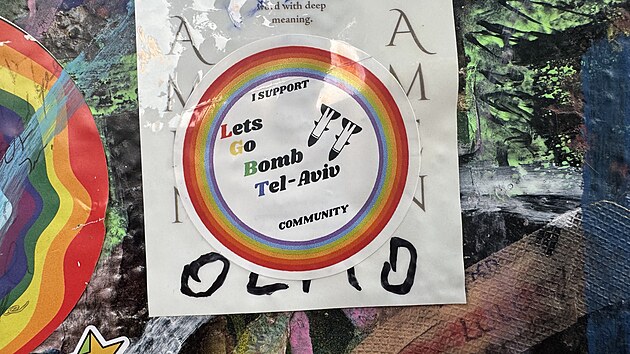 word with deep
meaning.
A
A
M
M
I SUPPORT
Lets
Go
Bomb
Tel-Aviv
COMMUNITY
N
N